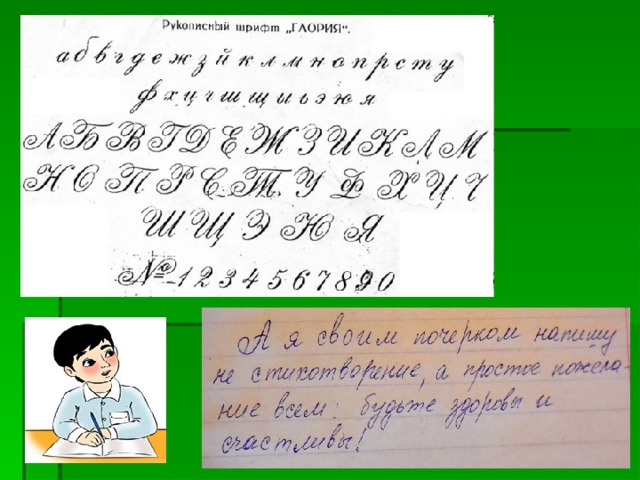 Рукописный шрифт „ГЛОРИЯ“.
а б в г д е ж з й к л м н о п р с т у
ф х ц ч ш щ ы ь э ю я
А Б В Г Д Е Ж З И К Л М
Н О П Р С Т У Ф Х Ц Ч
Ш Щ Э Ю Я
№-1 2 3 4 5 6 7 8 9 0
А я своим почерком напишу
не стихотворение, а простое пожела-
ние всем: будьте здоровы и
счастливы!